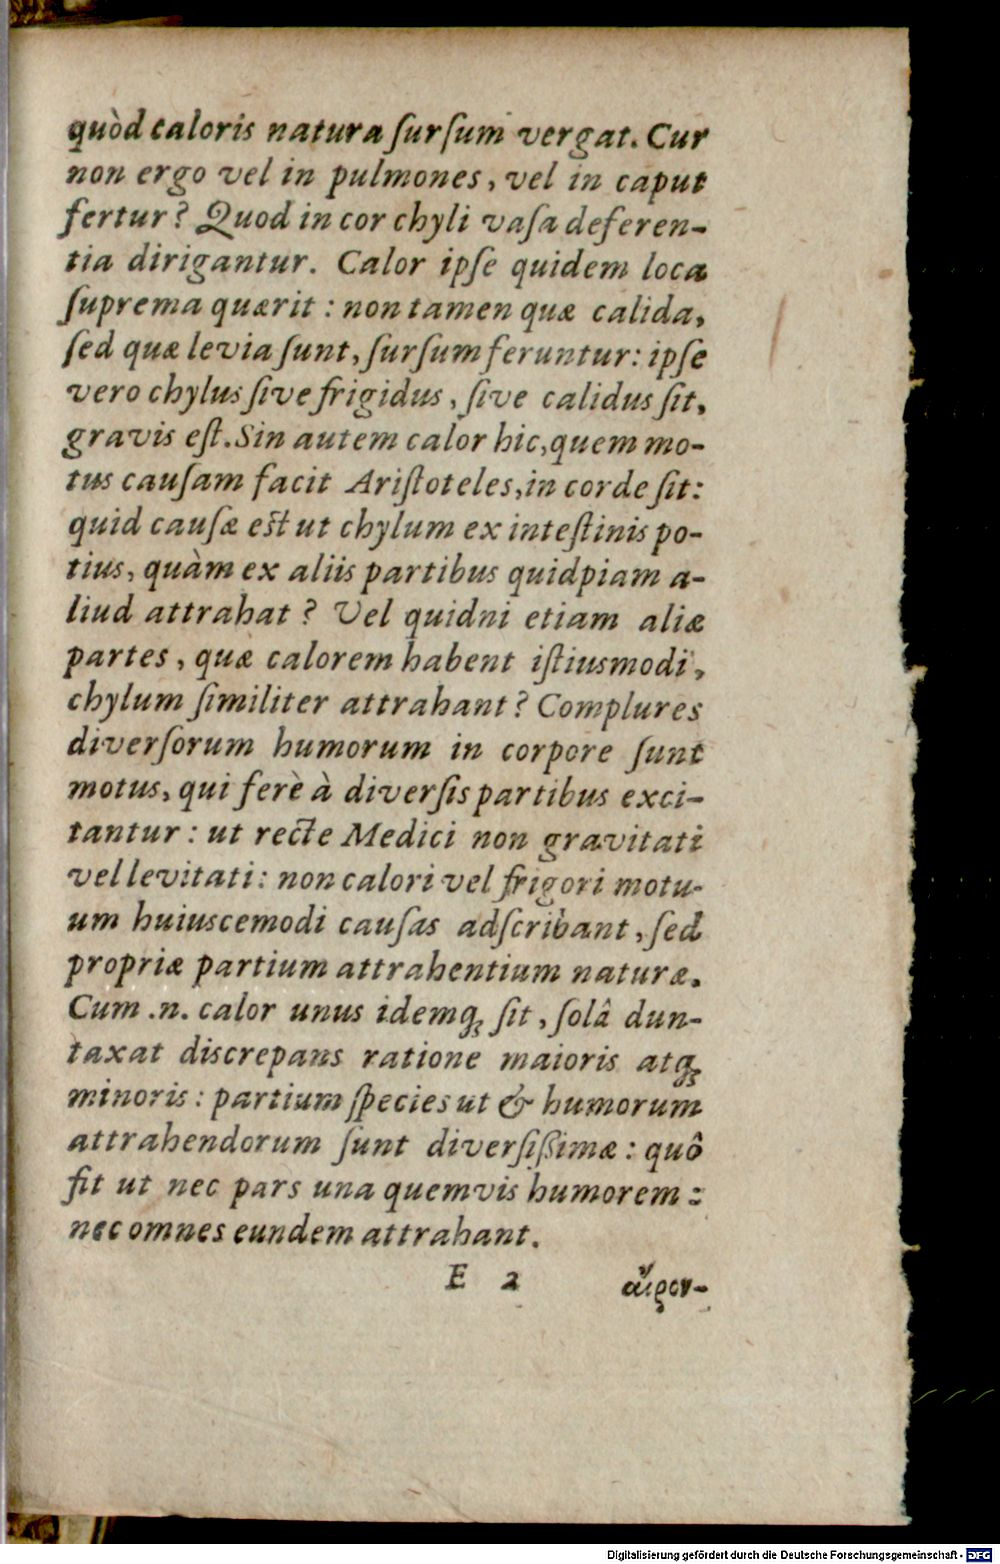 quòd caloris natura ſurſum vergat. Cur
non ergo vel in pulmones, vel in caput
fertur? Quod in cor chyli vaſa deferen-
tia dirigantur. Calor ipſe quidem loca
ſuprema quærit: non tamen quæ calida,
ſed quæ levia ſunt, ſurſum feruntur: ipſe
vero chylus ſive frigidus, ſive calidus ſit,
gravis eſt. Sin autem calor hic, quem mo-
tus cauſam facit Ariſtoteles, in corde ſit:
quid cauſæ eſt ut chylum ex inteſtinis po-
tius, quàm ex aliis partibus quidpiam a-
liud attrahat? Vel quidni etiam aliæ
partes, quæ calorem habent iſtiusmodi,
chylum ſimiliter attrahant? Complures
diverſorum humorum in corpore ſunt
motus, qui ferè à diverſis partibus exci-
tantur: ut recte Medici non gravitati
vel levitati: non calori vel frigori motu-
um huiuscemodi cauſas adſcribant, ſed
propriæ partium attrahentium naturæ.
Cum .n. calor unus idemq; ſit, ſolâ dun-
taxat discrepans ratione maioris atq;
minoris: partium ſpecies ut & humorum
attrahendorum ſunt diverſißimæ: quô
fit ut nec pars una quemvis humorem:
nec omnes eundem attrahant.
E 2 ἄιρον-
Digitalisierung gefördert durch die Deutsche Forschungsgemeinschaft - DFG